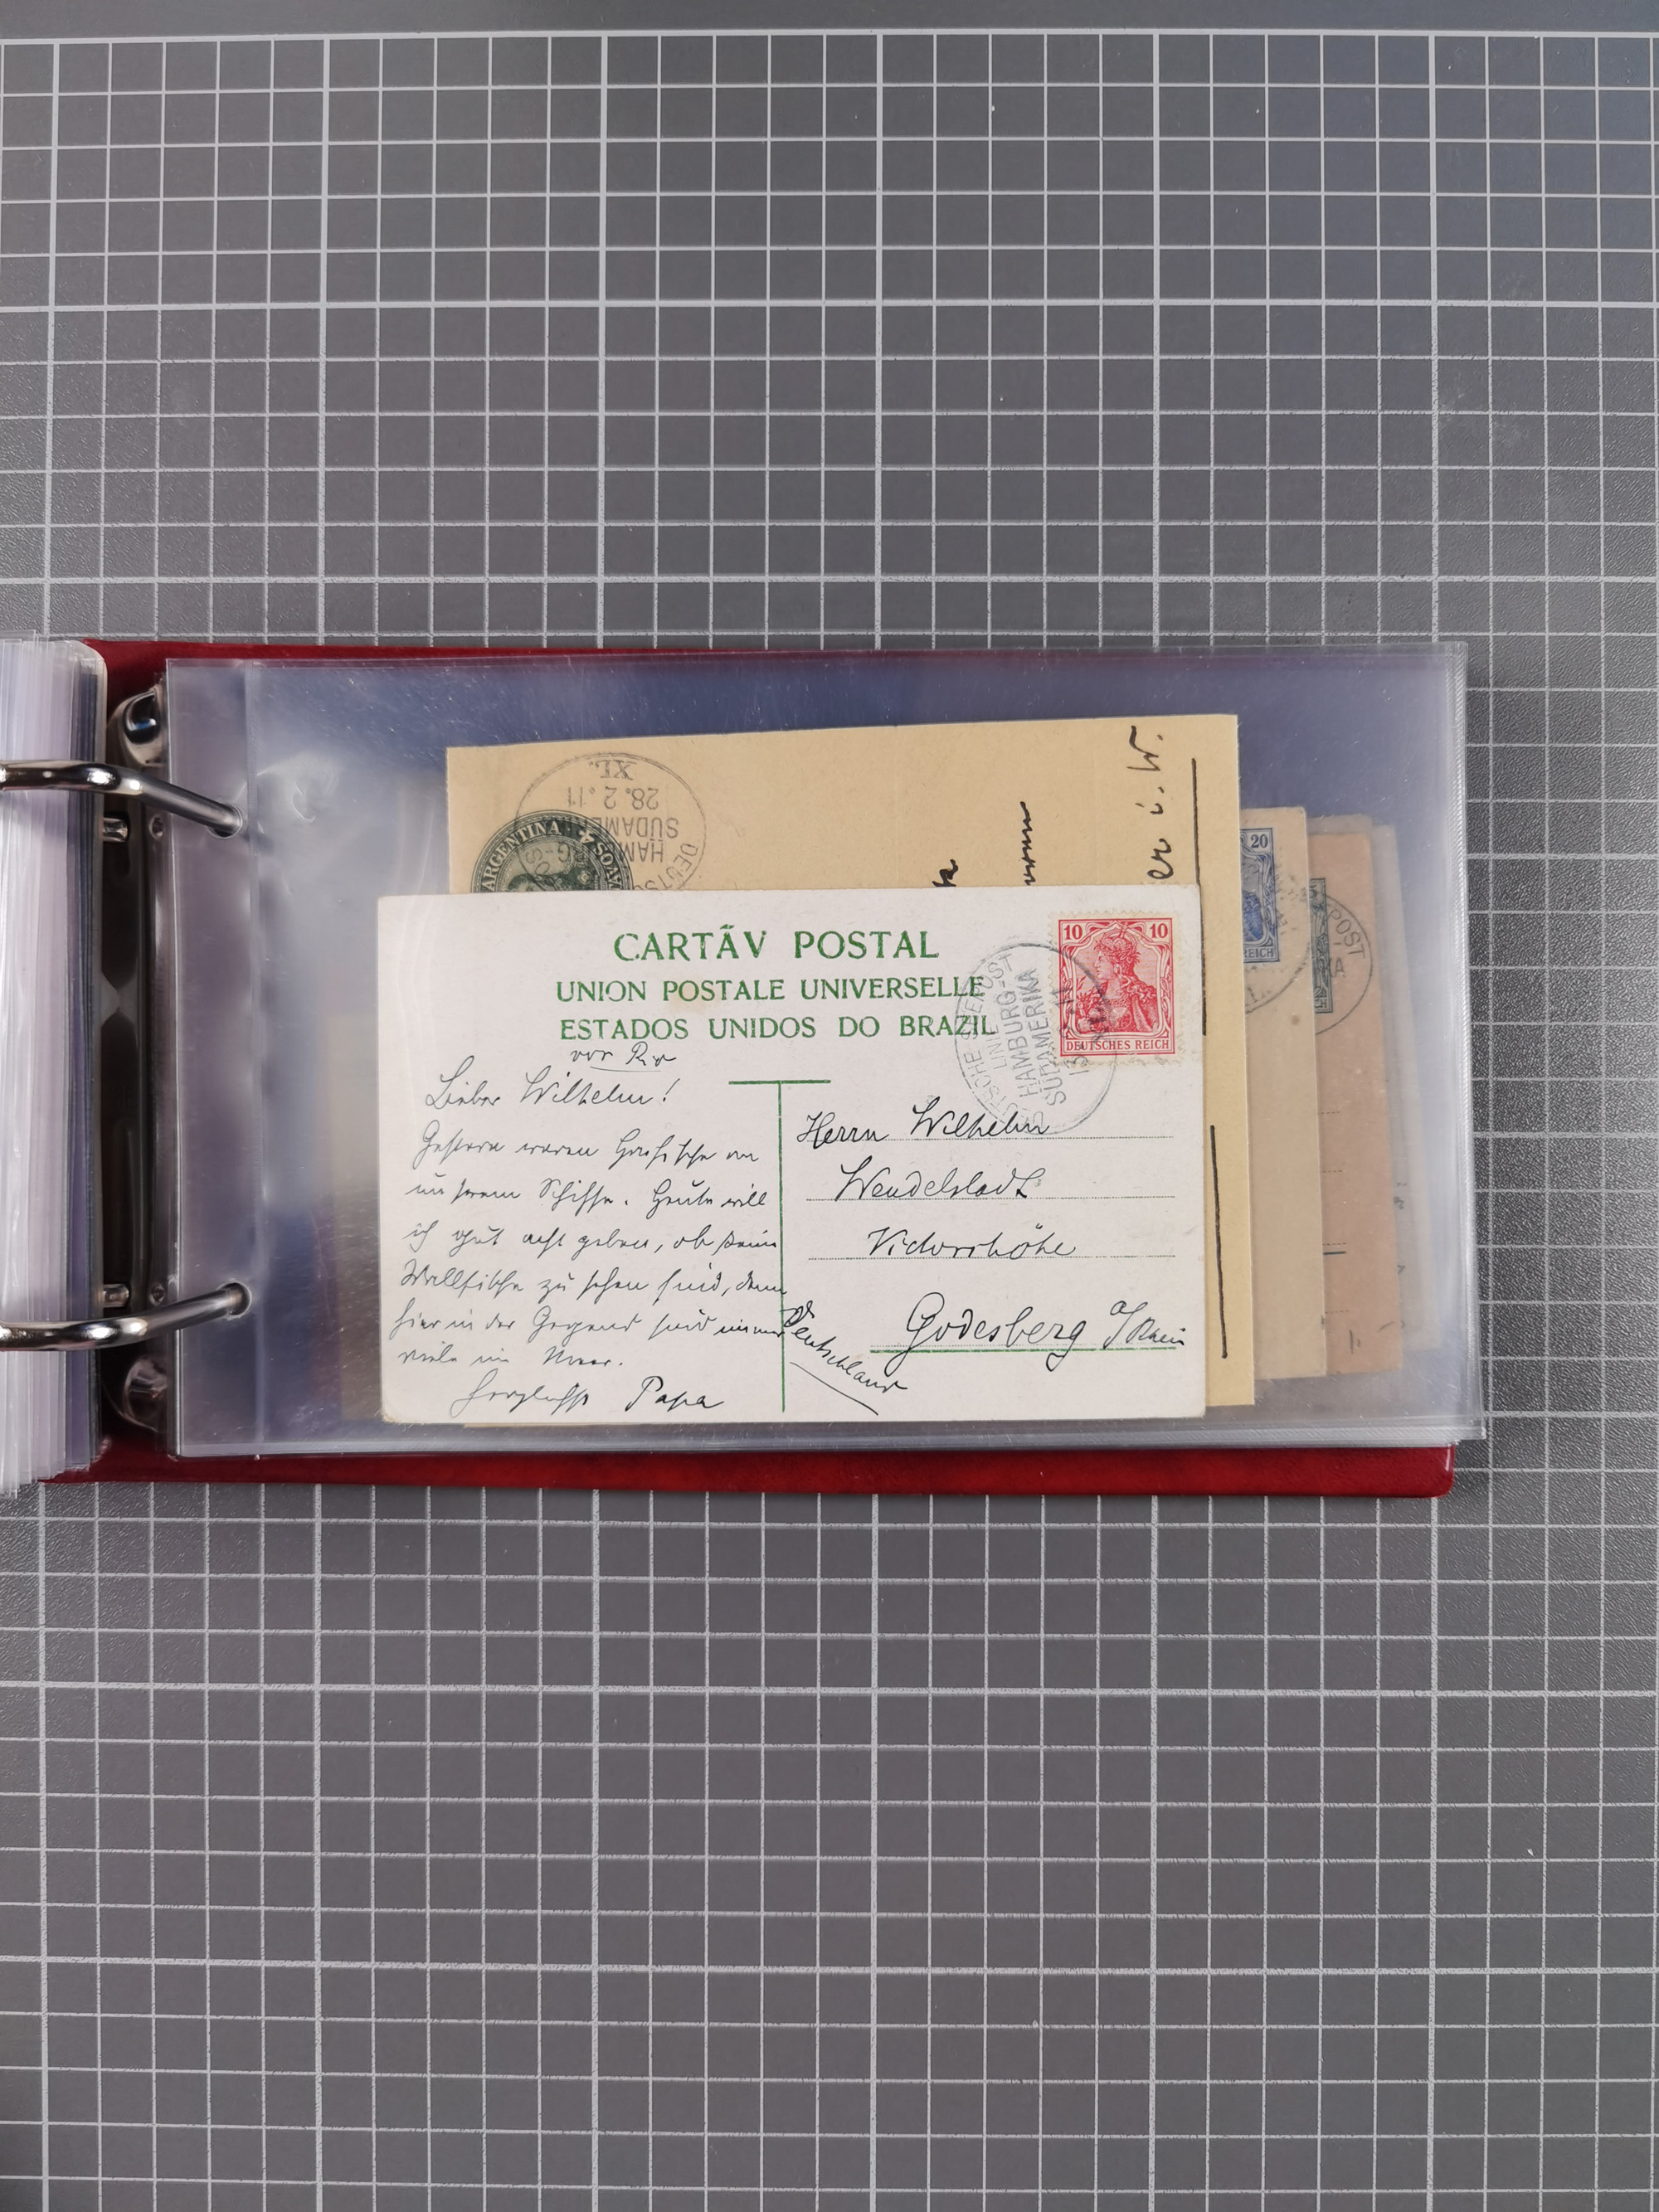 ARGENTINA
HAMBURG-
SÜDAMERIKA
28.2.11
XL.
er i. W.
20
REICH
POST
KA
CARTÃV POSTAL
UNION POSTALE UNIVERSELLE
ESTADOS UNIDOS DO BRAZIL
10 10
DEUTSCHES REICH
LINIE
HAMBURG-
SÜDAMERIKA
vor Rio
Lieber Wilhelm!
Gestern waren Haifische an
unserem Schiffe. Heute will
ich gut acht geben, ob keine
Wallfische zu sehen sind, denn
hier in der Gegend sind immer
viele im Meer.
Herzlichst Papa
Herrn Wilhelm
Wendelstadt
Victorshöhe
Godesberg a/Rhein
Deutschland